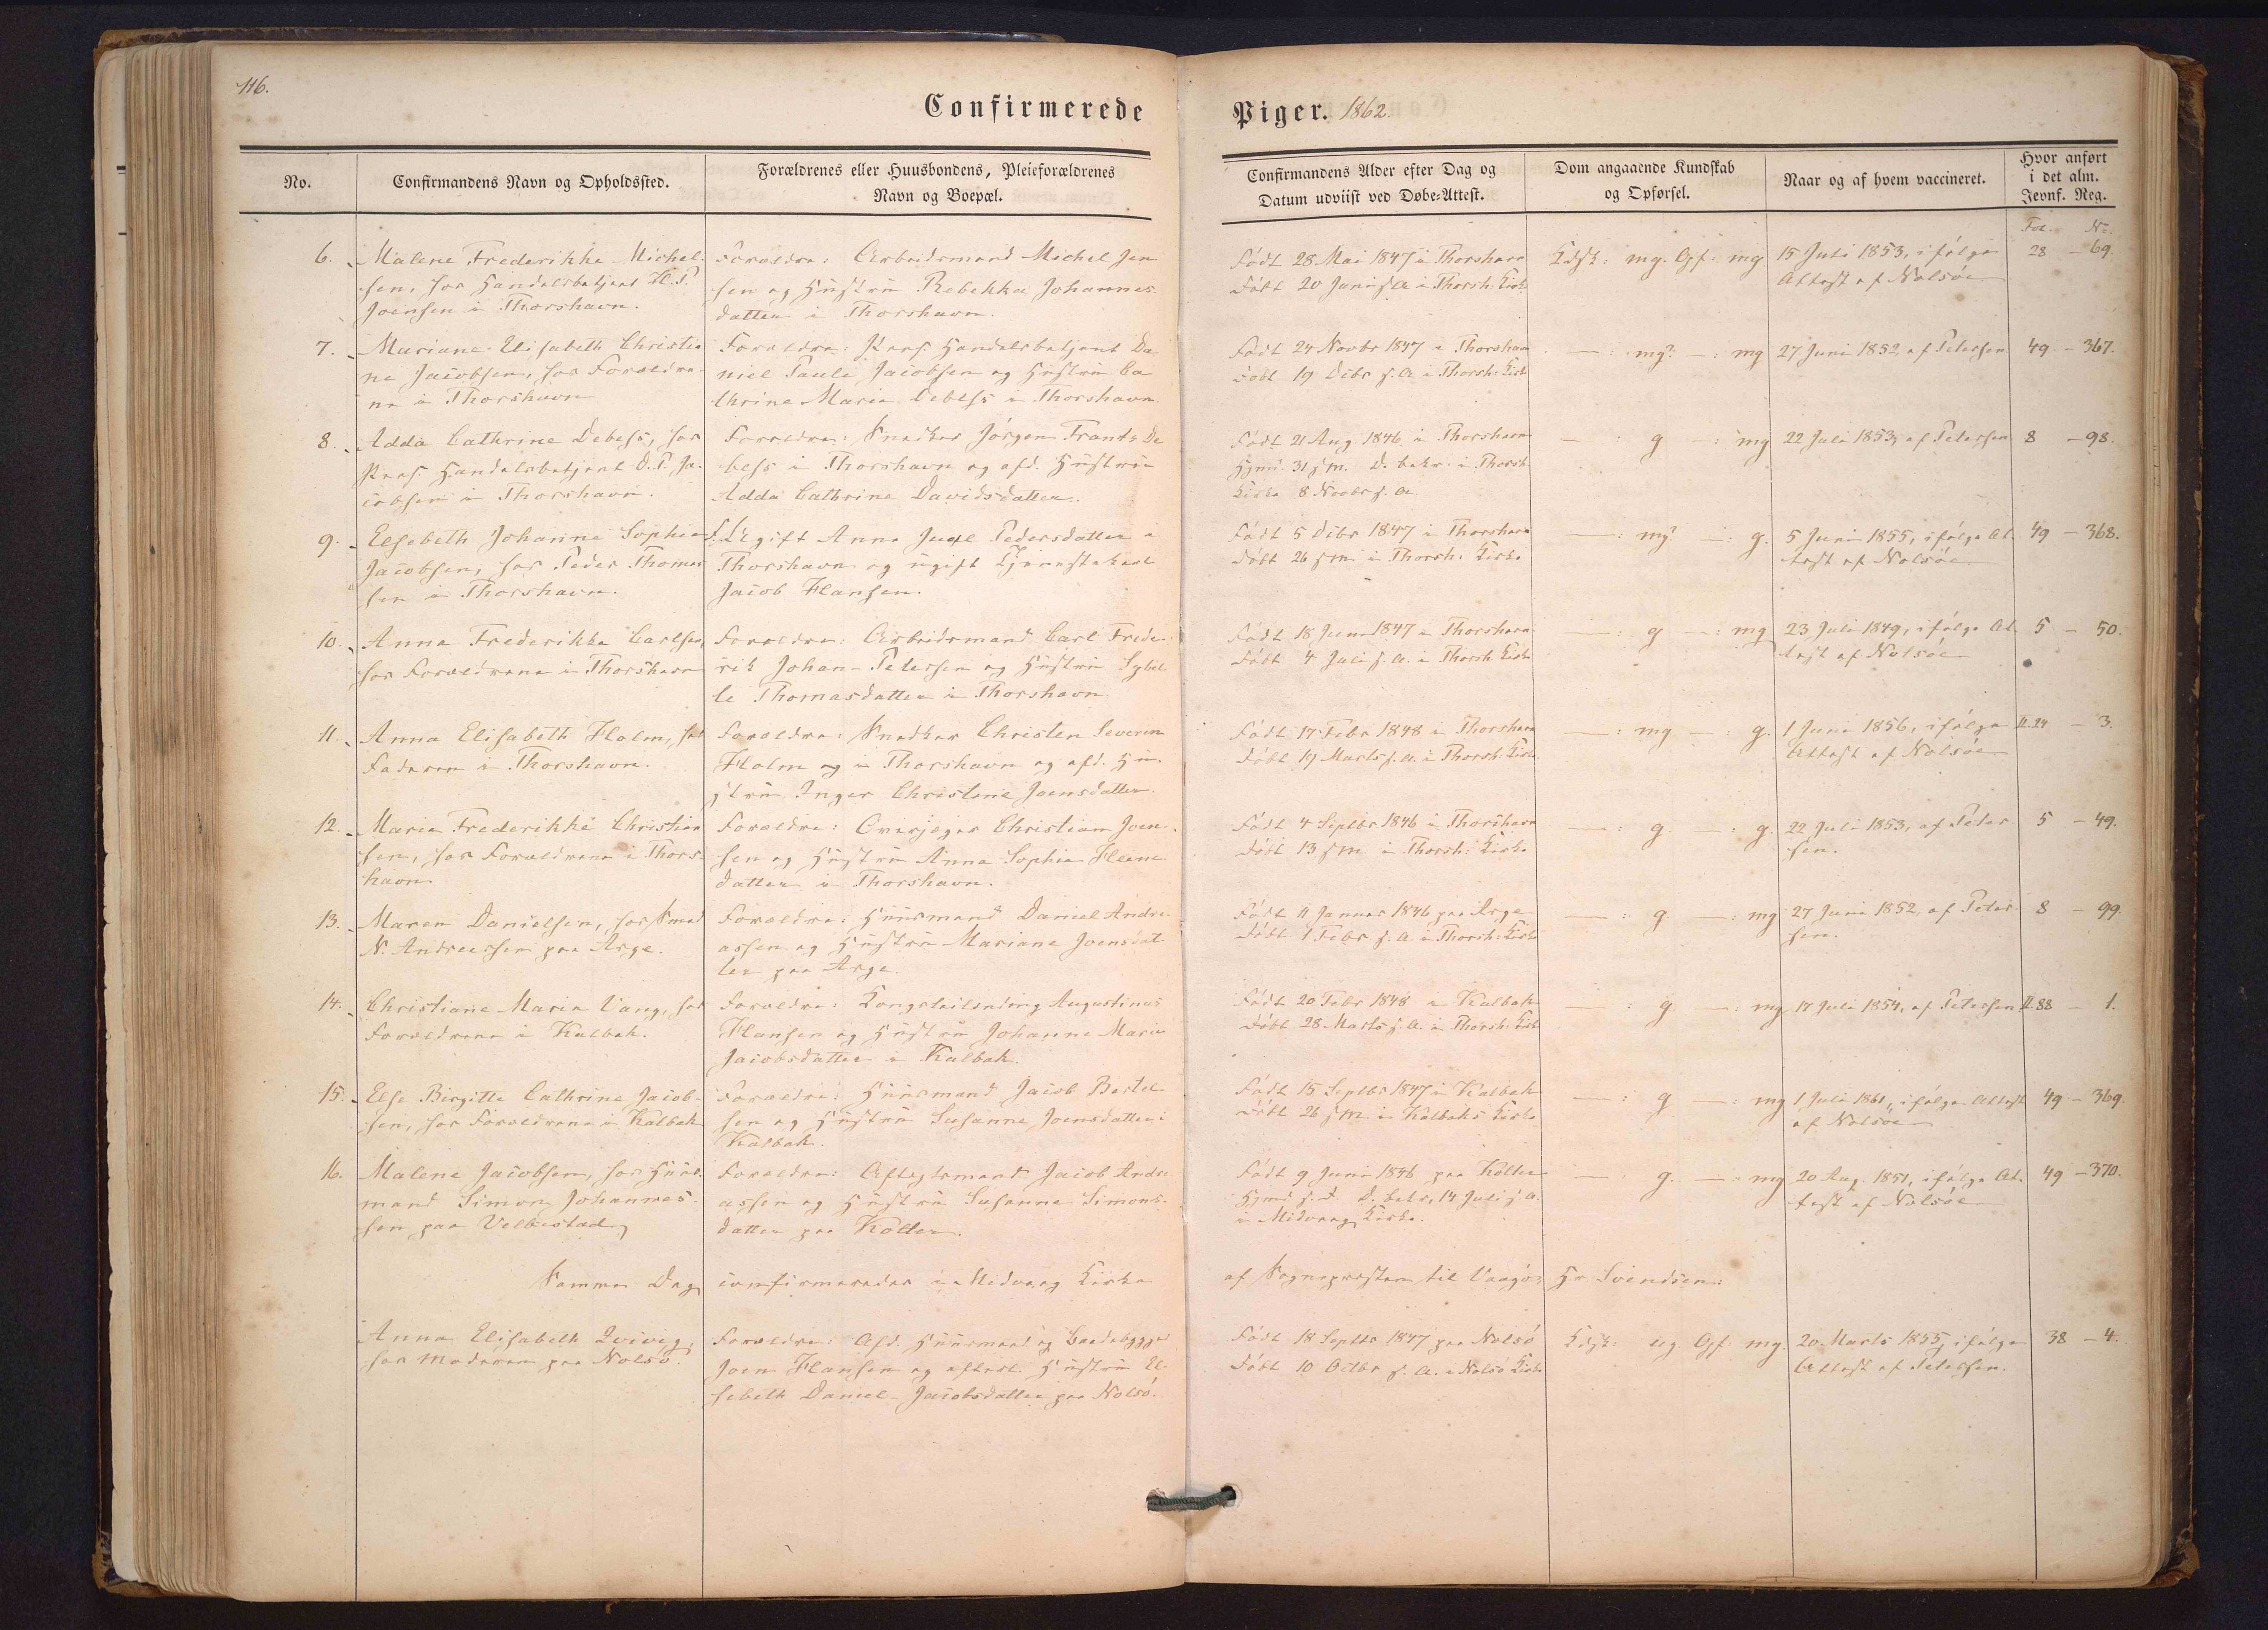 116.
Confirmerede
Piger. 1862.
No.
Confirmandens Navn og Opholdssted.
Forældrenes eller Huusbondens, Pleieforældrenes
Navn og Boepæl.
Confirmandens Alder efter Dag og
Datum udviist ved Døbe-Attest.
Dom angaaende Kundskab
og Opførsel.
Naar og af hvem vaccineret.
Hvor anført
i det alm.
Jevnf. Reg.
Fol. No.
6. Malene Frederikke Michel-
sen, hos Handelsbetjent H. P.
Joensen i Thorshavn.
Forældre: Arbeidsmand Michel Jen
sen og Hustru Rebekka Johannes-
datter i Thorshavn.
Født 28 Mai 1847 i Thorshavn
Døbt 20 Juni s. A. i Thorsh. Kirke
Kdsk: mg. Opf. mg
15 Juli 1853, ifølge
Attest af Nolsöe
28 – 69.
7. Mariane Elisabeth Christia
ne Jacobsen, hos Forældre-
ne i Thorshavn
Forældre: Handelsbetjent Da
niel Pauli Jacobsen og Hustru Ca
thrine Maria Debess i Thorshavn.
Født 24 Novbr 1847 i Thorshavn
Døbt 19 Decbr s. A. i Thorsh. Kirke
— : mg? — : mg
27 Juni 1852, af Petersen
49 – 367.
8. Adda Cathrine Debess, hos
Handelsbetjent D. P. Ja-
cobsen i Thorshavn.
Forældre: Snedker Jørgen Frants De
bess i Thorshavn og afd. Hustru
Adda Cathrine Davidsdatter.
Født 21 Aug. 1846 i Thorshavn
Hjmd. 31 s. M. D. bekr. i Thorsh.
Kirke 8 Novbr s. A.
— : g — : mg
22 Juli 1853, af Petersen
8 – 98.
9. Elsebeth Johanne Sophie
Jacobsen, hos Peder Thomas
sen i Thorshavn.
Ugift Anna Pedersdatter i
Thorshavn og ugift Tjenestekarl
Jacob Hansen.
Født 5 Decbr 1847 i Thorshavn
Døbt 26 s. M. i Thorsh. Kirke
— : mg? — : g.
5 Juni 1855, ifølge At-
test af Nolsöe
49 – 368.
10. Anna Frederikke Carlsen,
hos Forældrene i Thorshavn
Forældre: Arbeidsmand Carl Frede-
rik Johan Petersen og Hustru Sybil
le Thomasdatter i Thorshavn
Født 18 Juni 1847 i Thorshavn
Døbt 4 Juli s. A. i Thorsh. Kirke
— : g — : mg
23 Juli 1849, ifølge At-
test af Nolsöe
5 – 50.
11. Anna Elisabeth Holm, hos
Faderen i Thorshavn.
Forældre: Snedker Christen Severin
Holm og i Thorshavn og afd. Hu-
stru Inger Christine Joensdatter.
Født 17 Febr 1848 i Thorshavn
Døbt 19 Marts s. A. i Thorsh. Kirke
— : mg — : g.
1 Juni 1856, ifølge
Attest af Nolsöe
II. 24 – 3.
12. Maria Frederikke Christian
sen, hos Forældrene i Thors-
havn.
Forældre: Christian Joen-
sen og Hustru Anna Sophia
datter i Thorshavn.
Født 4 Septbr 1846 i Thorshavn
Døbt 13 s. M. i Thorsh. Kirke
— : g — : g.
22 Juli 1853, af Peter
sen.
5 – 49.
13. Maren Danielsen, hos Smed
N. Andreassen paa Arge.
Forældre: Huusmand Daniel Andre-
assen og Hustru Mariane Joensdat-
ter paa Arge.
Født 11 Januar 1846 paa Arge
Døbt 1 Febr s. A. i Thorsh. Kirke
— : g — : mg
27 Juni 1852, af Peter-
sen.
8 – 99.
14. Christiane Maria Vang, hos
Forældrene i Kalbak.
Forældre: Kongsleilending Augustinus
Hansen og Hustru Johanne Marie
Jacobsdatter i Kalbak.
Født 20 Febr 1848 i Kalbak
Døbt 28 Marts s. A. i Thorsh. Kirke
— : g — : mg
17 Juli 1854, af Petersen
II. 88 – 1.
15. Else Birgitte Cathrine Jacob-
sen, hos Forældrene i Kalbak
Forældre: Huusmand Jacob Bertel-
sen og Hustru Susanne Joensdatter i
Kalbak.
Født 15 Septbr 1847 i Kalbak
Døbt 26 s. M. i Kalbaks Kirke
— : g — : mg
1 Juli 1861, ifølge Attest
af Nolsöe
49 – 369.
16. Malene Jacobsen, hos Huus-
mand Simon Johannes-
sen paa Velbestad
Forældre: Aftægtsmand Jacob Andre
assen og Hustru Susanne Simons-
datter paa Kolter.
Født 9 Juni 1846 paa Kolter
Hjmd s. D. D. bekr. 14 Juli s. A.
i Midvaag Kirke.
— : g. — : mg
20 Aug. 1851, ifølge At-
test af Nolsöe
49 – 370.
Samme Dag confirmeredes i Midvaag Kirke
af Sognepræsten til Vaagø, Hr Svendsen:
Anna Elisabeth
hos Moderen paa Nolsö.
Forældre: Afd. Huusmand og Baadebygger
Joen Hansen og efterl. Hustru El-
sebeth Daniel-Jacobsdatter paa Nolsö.
Født 18 Septbr 1847 paa Nolsö
Døbt 10 Octbr s. A. i Nolsö Kirke
Kdsk: ug. Opf. mg.
20. Marts 1855, ifølge
Attest af Petersen.
38 – 4.